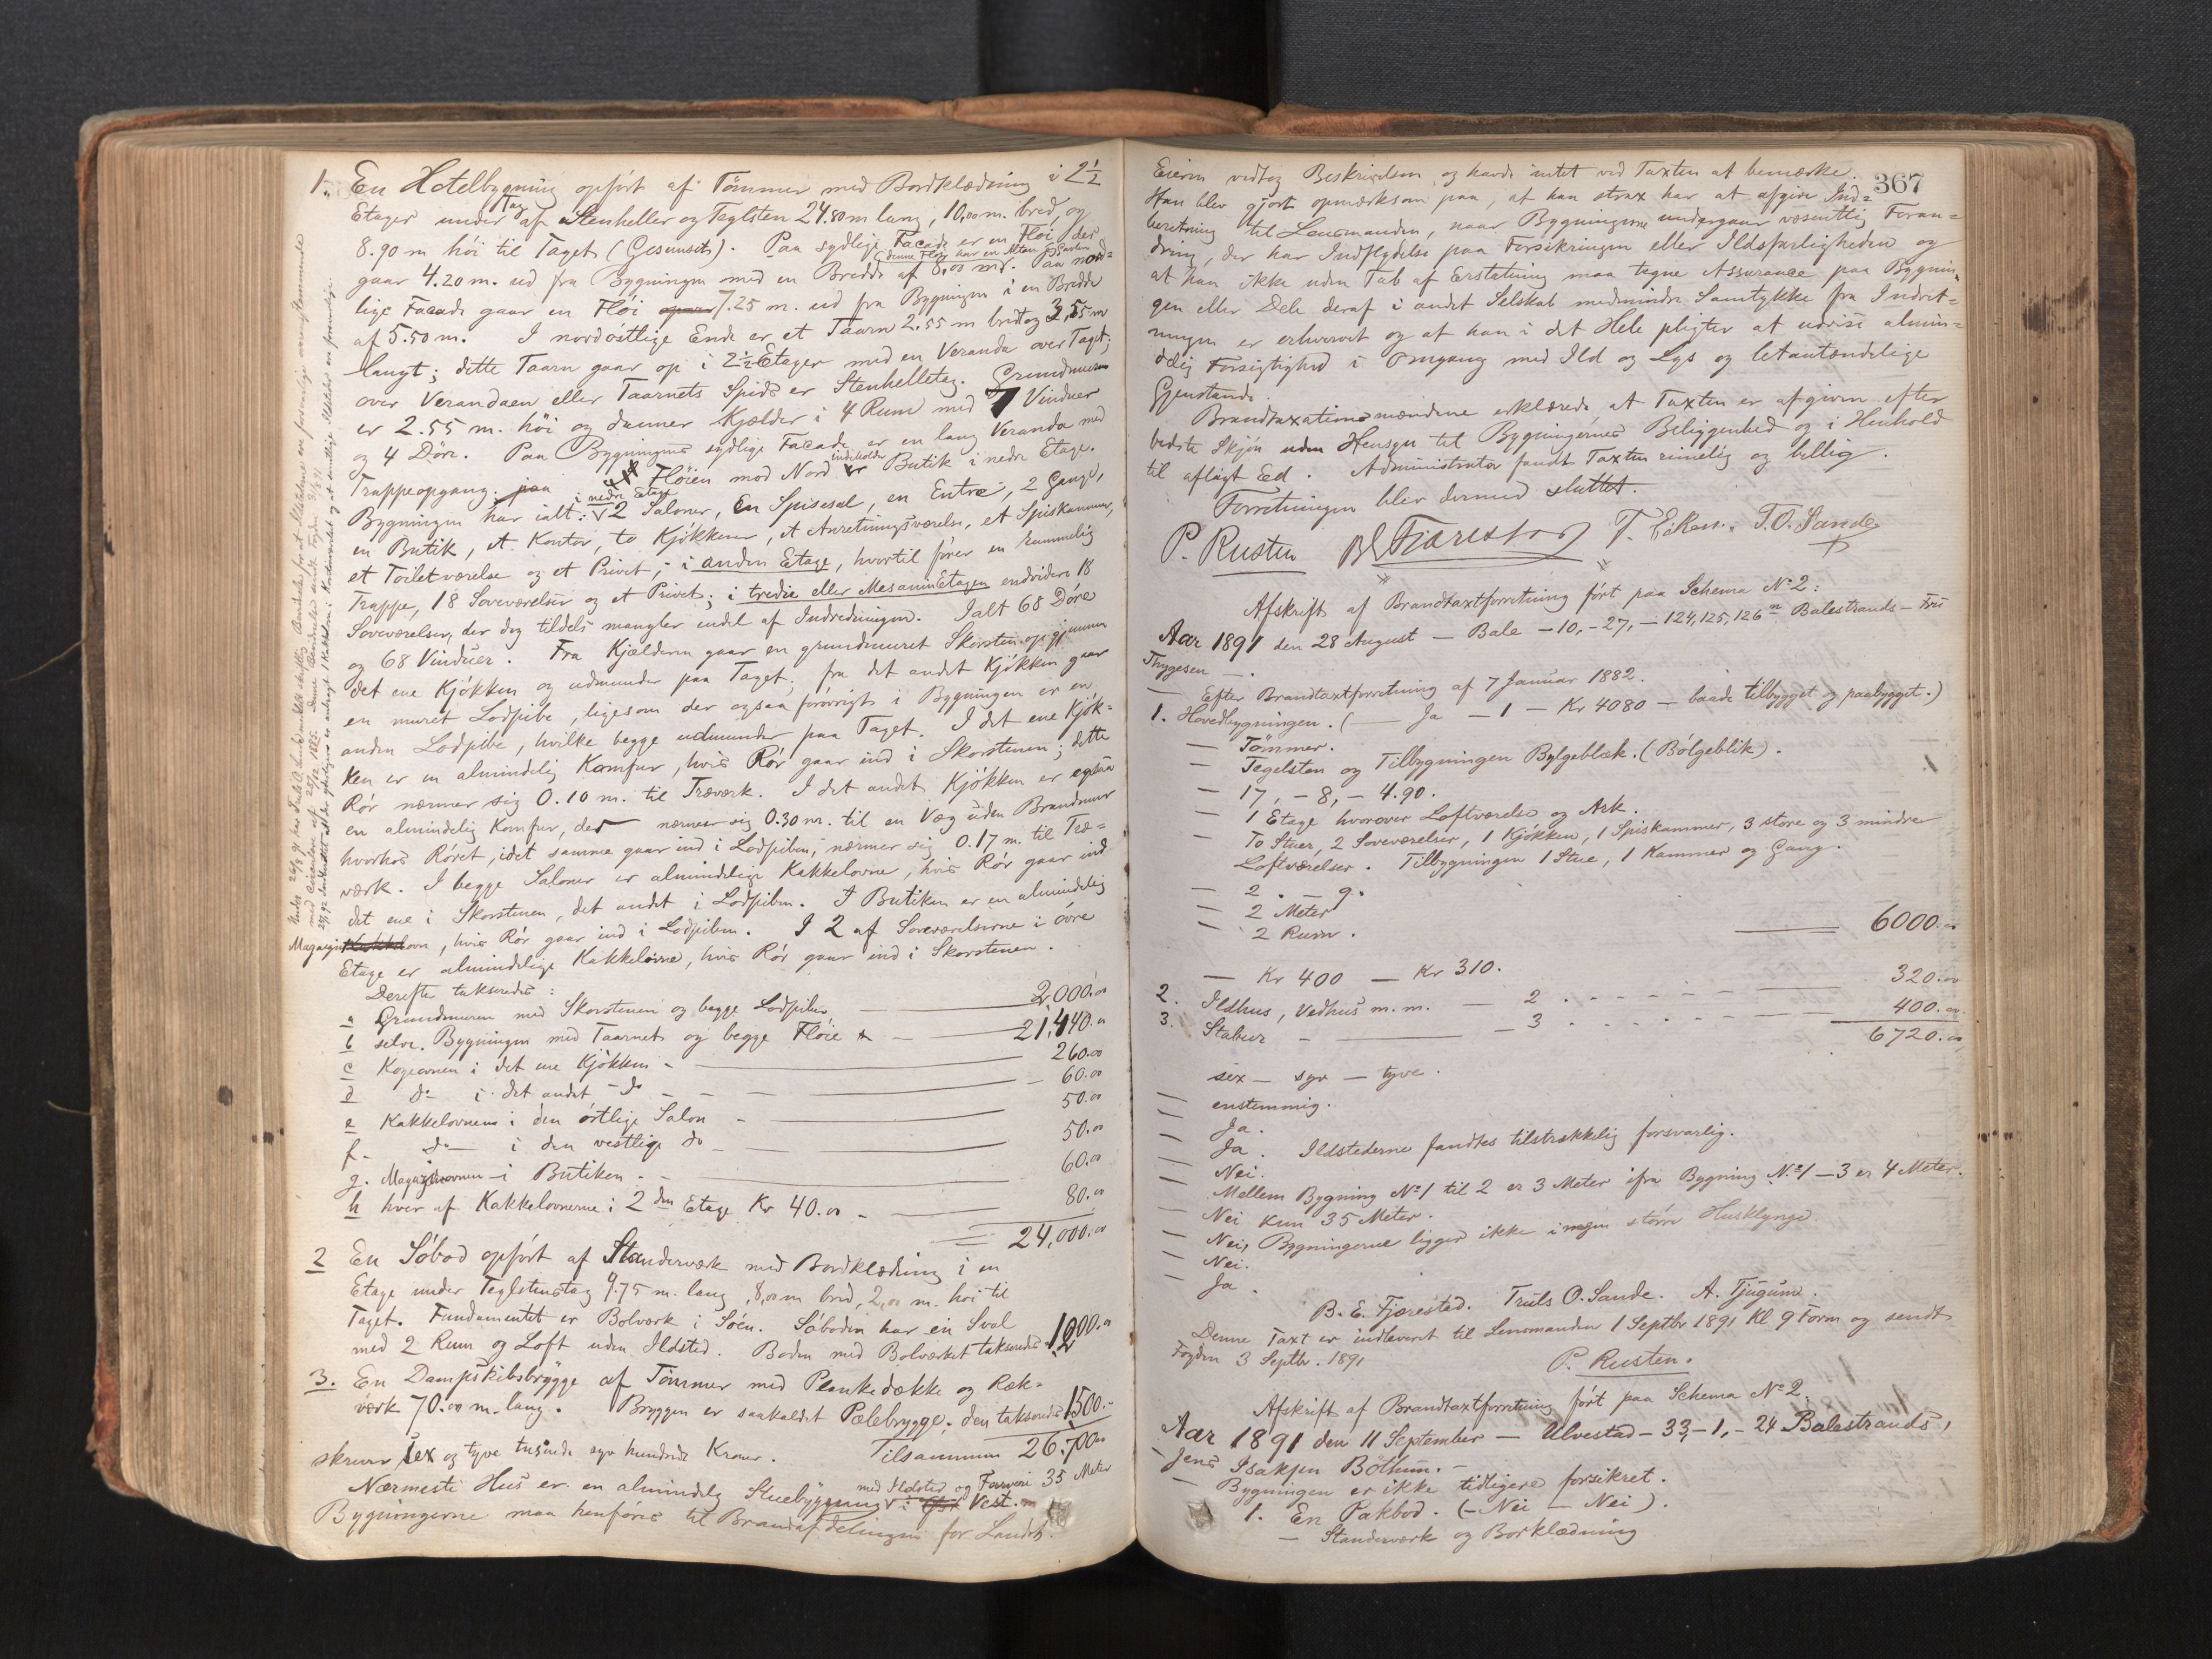 1. En Hotelbygning opført af Tømmer med Bordklædning i 2½
Etager under Tag af Stenheller og Teglsten 24.80 m lang, 10,00 m. bred, og
8.90 m høi til Taget (Gesimset). Paa sydlige Facade er en Fløi, der
gaar 4.20 m. ud fra Bygningen med en Bredde af 8,00 m. denne Fløi har en Altan Paa nord=
lige Facade gaar en Fløi 7.25 m. ud fra Bygningen i en Bredde
af 5.50 m. I nordøstlige Ende er et Taarn 2.55 m bredt og 3,55 m
langt; dette Taarn gaar op i 2½ Etager med en Veranda over Taget;
over Verandaen eller Taarnets Spids er Stenhelletag. Grundmuren
er 2.55 m. høi og danner Kjælder i 4 Rum med 7 Vinduer
og 4 Døre. Paa Bygningens sydlige Facade er en lang Veranda med
Trappeopgang. Fløien mod Nord indeholder Butik i nedre Etage.
Bygningen har ialt: i nedre Etage 2 Saloner, En Spisesal, en Entre, 2 Gange,
en Butik, et Kontor, to Kjøkkener, et Anretningsværelse, et Spiskammer,
et Toiletværelse og et Privet; i anden Etage, hvortil fører en rummelig
Trappe, 18 Soveværelser og et Privet; i tredie eller Mesaninetagen endvidere 18
Soveværelser, der dog tildels mangler endel af Indredningen. Ialt 68 Døre
og 68 Vinduer. Fra Kjælderen gaar en grundmuret Skorsten op gjennem
det ene Kjøkken og udmunder paa Taget; fra det andet Kjøkken gaar
en muret Lodpibe, ligesom der ogsaa forøvrigt i Bygningen er en
anden Lodpibe, hvilke begge udmunder paa Taget. I det ene Kjøk=
ken er en almindelig Komfur, hvis Rør gaar ind i Skorstenen; dette
Rør nærmer sig 0.10 m. til Træværk. I det andet Kjøkken er ogsaa
en almindelig Komfur, der nærmer sig 0.30 m. til en Væg uden Brandmur
hvorhos Røret, idet samme gaar ind i Lodpiben, nærmer sig 0.17 m. til Træ=
værk. I begge Saloner er almindelige Kakkelovne, hvis Rør gaar ind
det ene i Skorstenen, det andet i Lodpiben. I Butiken er en almindelig
Magazinovn, hvis Rør gaar ind i Lodpiben. I 2 af Soveværelserne i øvre
Etage er almindelige Kakkelovne, hvis Rør gaar ind i Skorstenen.
Derefter takseredes:
a Grundmuren med Skorstenen og begge Lodpiber 2,000.00
b selve Bygningen med Taarnet og begge Fløie 21,440.00
c Kogeovnen i det ene Kjøkken 260.00
d do i det andet do 60.00
e Kakkelovnen i den østlige Salon 50.00
f. do i den vestlige do 50.00
g. Magazinovnen i Butiken 60.00
h hver af Kakkelovnerne i 2den Etage Kr 40.00 80.00
24,000.00
2 En Søbod opført af Standerværk med Bordklædning i en
Etage under Teglstenstag 9.75 m. lang, 8,00 m bred, 2,00 m. høi til
Taget. Fundamentet er Bolværk i Søen. Søboden har en Sval
med 2 Rum og Loft uden Ildsted. Boden med Bolværket takseredes 1200.00
3. En Dampskibsbrygge af Tømmer med Plankedække og Ræk=
værk 70.00 m. lang. Bryggen er saakaldet Pælebrygge; den takseredes 1500.-
skriver sex og tyve tusinde syv hundrede Kroner. Tilsammen 26.700.00
Nærmeste Hus er en almindelig Stuebygning med Ildsted og Farveri 35 Meter
i Vest.
Bygningerne maa henføres til Brandafdelingen for Landet.
367
Eieren vedtog Beskrivelsen og havde intet ved Taxten at bemærke.
Han blev gjort opmærksom paa, at han strax har at afgive Ind=
beretning til Lensmanden, naar Bygningerne undergaar væsentlig Foran=
dring, der har Indflydelse paa Forsikringen eller Ildsfarligheden og
at han ikke uden Tab af Erstatning maa tegne Assurance paa Bygnin=
gen eller Dele deraf i andet Selskab medmindre Samtykke fra Indret=
ningen er erhvervet og at han i det Hele pligter at udvise almin=
delig Forsigtighed i Omgang med Ild og Lys og letantændelige
Gjenstande.
Brandtaxationsmændene erklærede at Taxten er afgiven efter
bedste Skjøn uden Hensyn til Bygningernes Beliggenhed og i Henhold
til aflagt Ed. Administrator fandt Taxten rimelig og billig.
Forretningen blev dermed sluttet.
P. Rusten B E Fjærestad T. Eiken. T. O. Sande
Afskrift af Brandtaxtforretning ført paa Schema No 2:
Aar 1891 den 28 August — Bale — 10, — 27, — 124, 125, 126 Balestrands — Fris
Thygesen —.
— Efter Brandtaxtforretning af 7 Januar 1882.
1. Hovedbygningen. (— Ja — 1 — Kr 4080 — baade tilbygget og paabygget.)
— Tømmer.
— Tegelsten og Tilbygningen Bylgeblek. (Bølgeblik).
— 17, — 8, — 4.90.
— 1 Etage hvorover Loftværelse og Ark.
— To Stuer, 2 Soveværelser, 1 Kjøkken, 1 Spiskammer, 3 store og 3 mindre
Loftværelser. Tilbygningen 1 Stue, 1 Kammer og Gang.
— 2. — 9.
— 2 Meter
— 2 Rum. 6000.00
— Kr 400 — Kr 310.
2. Ildhus, Vedhus m. m. — 2 320.00
3. Stabur — 3 400.00
6720.00
sex — syv — tyve.
— enstemmig.
— Ja.
— Ja. Ildstederne fandtes tilstrækkelig forsvarlig.
— Nei.
— Mellem Bygning No 1 til 2 er 3 Meter ifra Bygning No 1 — 3 er 4 Meter.
— Nei kun 35 Meter.
— Nei, Bygningerne ligger ikke i nogen større Husklynge.
— Nei.
— Ja.
B. E. Fjærestad. Truls O. Sande. A. Tjugum.
Denne Taxt er indleveret til Lensmanden 1 Septbr 1891 Kl 9 Form og sendt
Fogden 3 Septbr. 1891
P. Rusten.
Afskrift af Brandtaxtforretning ført paa Schema No 2.
Aar 1891 den 11 September — Ulvestad — 33, — 1, — 24 Balestrands,
— Jens Isaksen Bøthun. —
— Bygningen er ikke tidligere forsikret.
1. En Pakbod. (— Nei — Nei).
— Standerværk og Borklædning